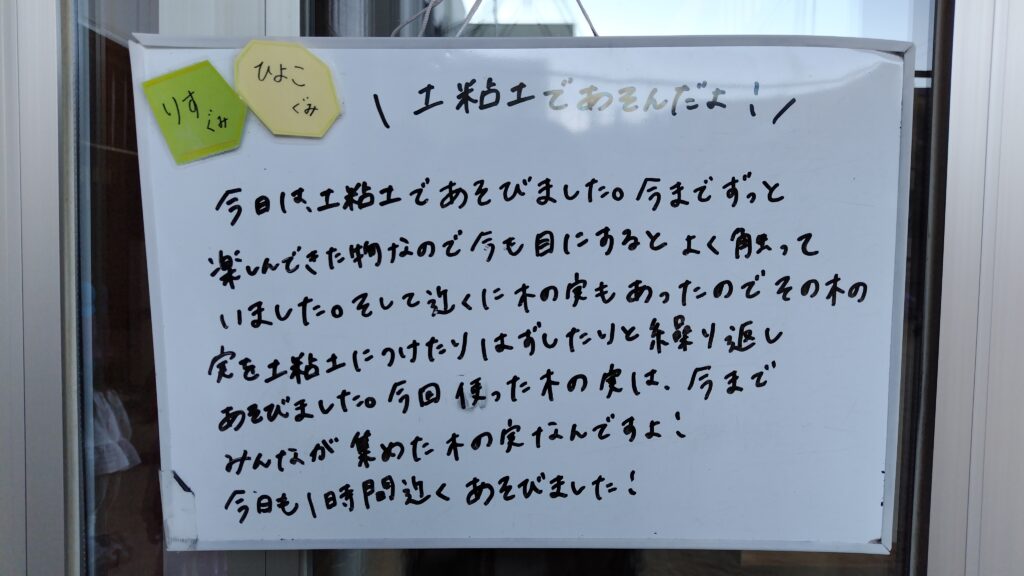 りす
ぐみ
ひよこ
ぐみ
\ 土粘土であそんだよ! /
今日は、土粘土であそびました。今までずっと
楽しんできた物なので今も目にするとよく触って
いました。そして近くに木の実もあったのでその木の
実を土粘土につけたりはずしたりと繰り返し
あそびました。今回使った木の実は、今まで
みんなが集めた木の実なんですよ!
今日も1時間近くあそびました!